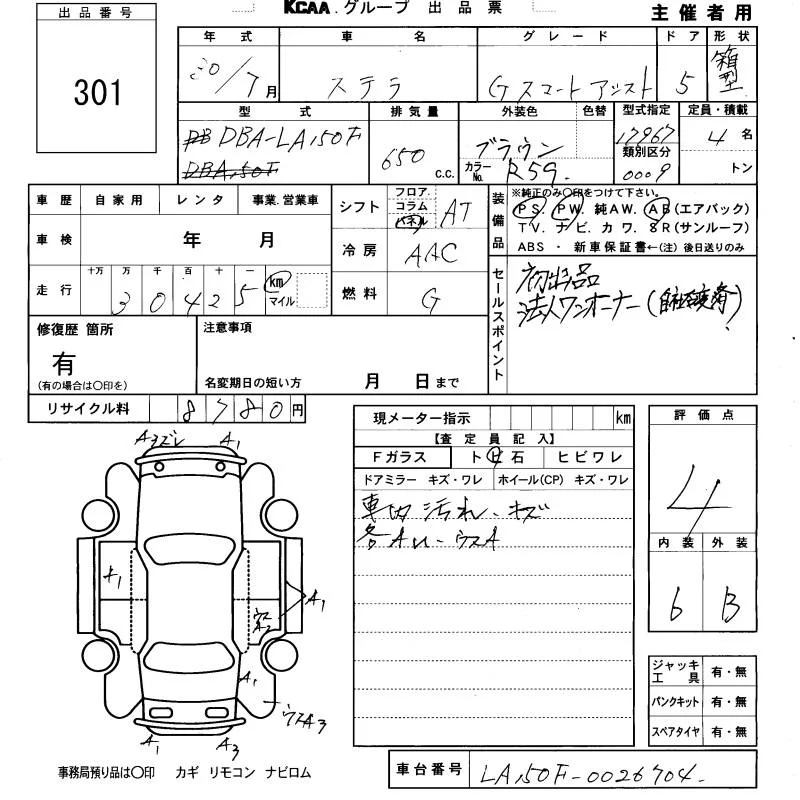 KCAA.グループ 出品票
主催者用
出品番号
301
年式 車名 グレード ドア 形状
30/7月 ステラ G スマートアシスト 5 箱型
型式 排気量 外装色 色替 型式指定 定員・積載
DBA-LA150F 650 c.c. ブラウン 17967 4名
DBA150F カラーNo. R59. 類別区分 0009 トン
車歴 自家用 レンタ 事業.営業車
シフト フロア コラム パネル AT
装備品 ※純正のみ○印をつけて下さい。
PS. PW. 純AW. AB(エアバック)
TV. ナビ. カワ. SR(サンルーフ)
ABS ・ 新車保証書←(注)後日送りのみ
車検 年 月
冷房 AAC
走行 十万 万 千 百 十 一
30425 km マイル
燃料 G
セールスポイント
初出品
法人ワンオーナー
修復歴 箇所
有
(有の場合は○印を)
注意事項
名変期日の短い方 月 日まで
リサイクル料 8780円
現メーター指示 km
【査定員記入】
Fガラス ト ヒ 石 ヒビワレ
ドアミラー キズ・ワレ ホイール(CP) キズ・ワレ
車内汚れ.キズ
各AU-ウスA
評価点
4
内装 外装
6 B
ジャッキ工具 有・無
パンクキット 有・無
スペアタイヤ 有・無
Aヨズレ A1
A1
A1
A2
A1
ウスA3
A1 A3
事務局預り品は○印 カギ リモコン ナビロム
車台番号 LA150F-0026704